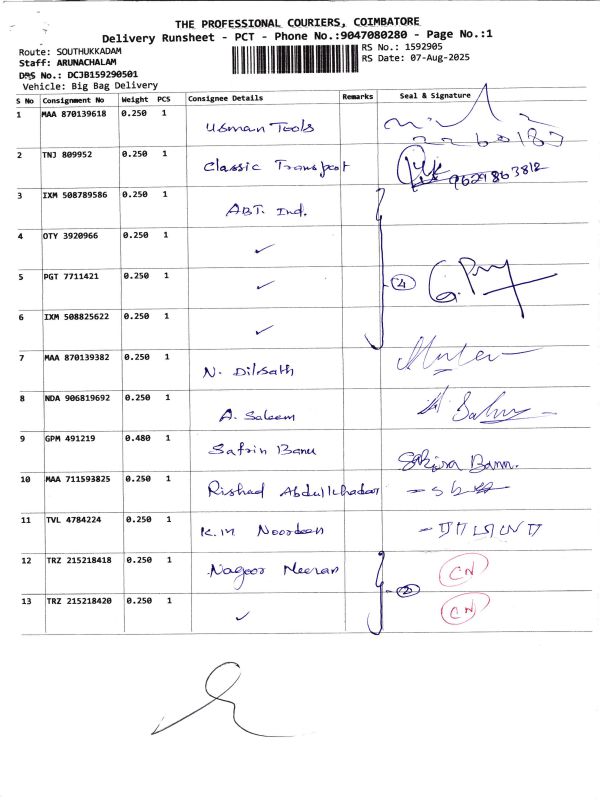 THE PROFESSIONAL COURIERS, COIMBATORE
Delivery Runsheet - PCT - Phone No.:9047080280 - Page No.:1
Route: SOUTHUKKADAM
RS No.: 1592905
Staff: ARUNACHALAM
RS Date: 07-Aug-2025
DRS No.: DCJB159290501
Vehicle: Big Bag Delivery
S No Consignment No Weight PCS Consignee Details Remarks Seal & Signature
1 MAA 870139618 0.250 1 Usman Tools
2 TNJ 809952 0.250 1 Classic Transport 9629863812
3 IXM 508789586 0.250 1 ABT. Ind.
4 OTY 3920966 0.250 1 ✓
5 PGT 7711421 0.250 1 ✓ 4
6 IXM 508825622 0.250 1 ✓
7 MAA 870139382 0.250 1 N. Dilsath
8 NDA 906819692 0.250 1 A. Saleem
9 GPM 491219 0.480 1 Safrin Banu
10 MAA 711593825 0.250 1 Rishad Abdulkhader
11 TVL 4784224 0.250 1 K.M Noordeen
12 TRZ 215218418 0.250 1 Nagoor Meeran CN
13 TRZ 215218420 0.250 1 ✓ 2 CN